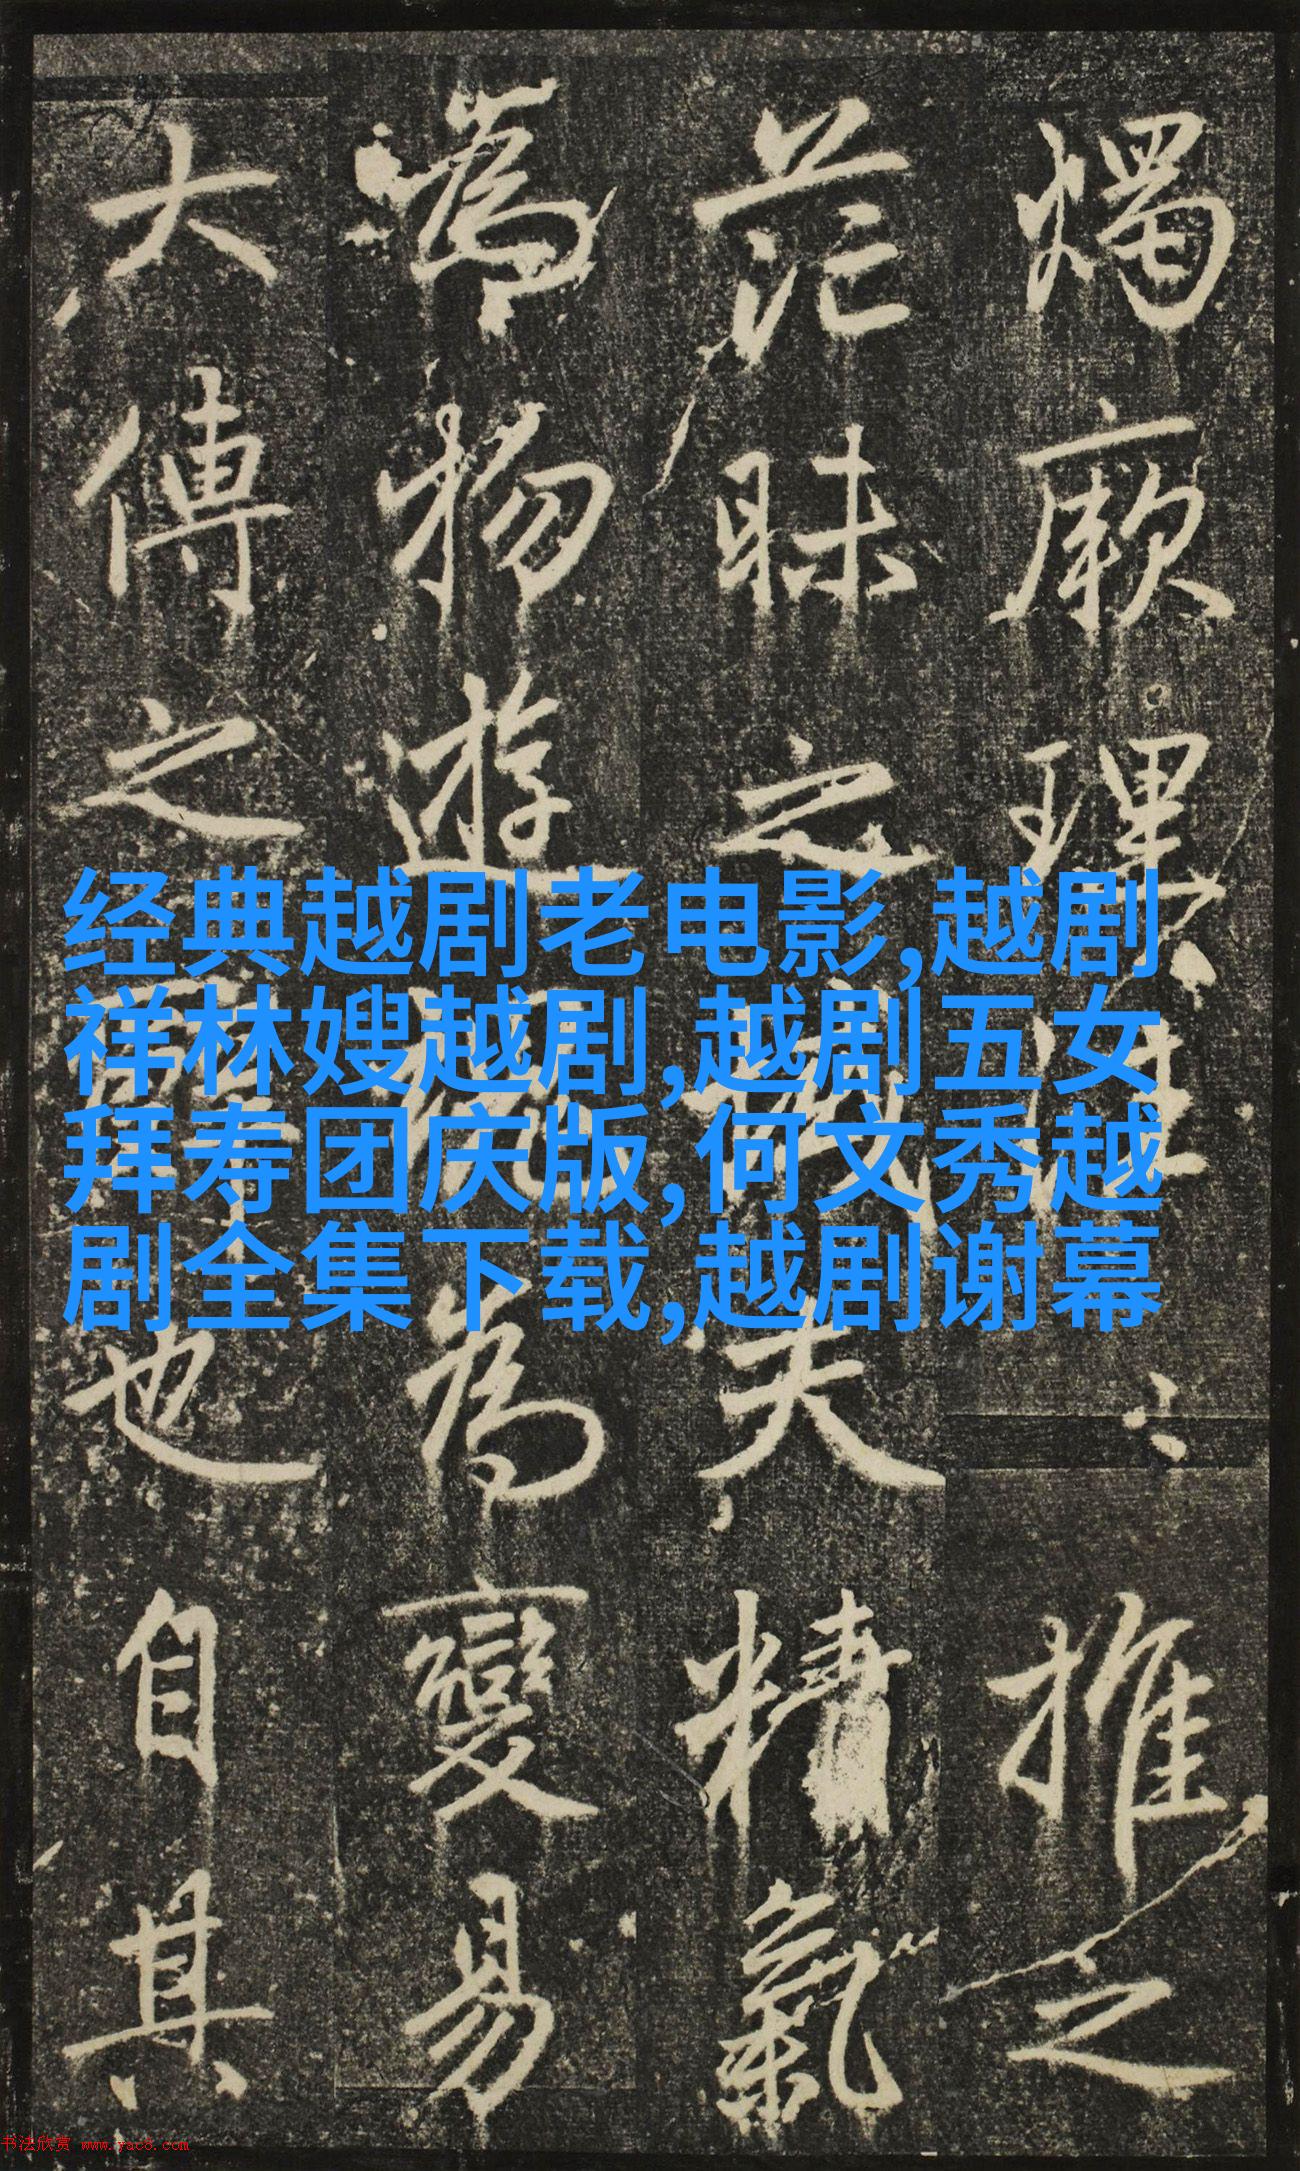 燭厥理推之
茫昧之夫精氣
為物遊為變易
大傳之也自其
经典越剧老电影,越剧
祥林嫂越剧,越剧五女
拜寿团庆版,何文秀越
剧全集下载,越剧谢幕
书法欣赏 www.yac8.com